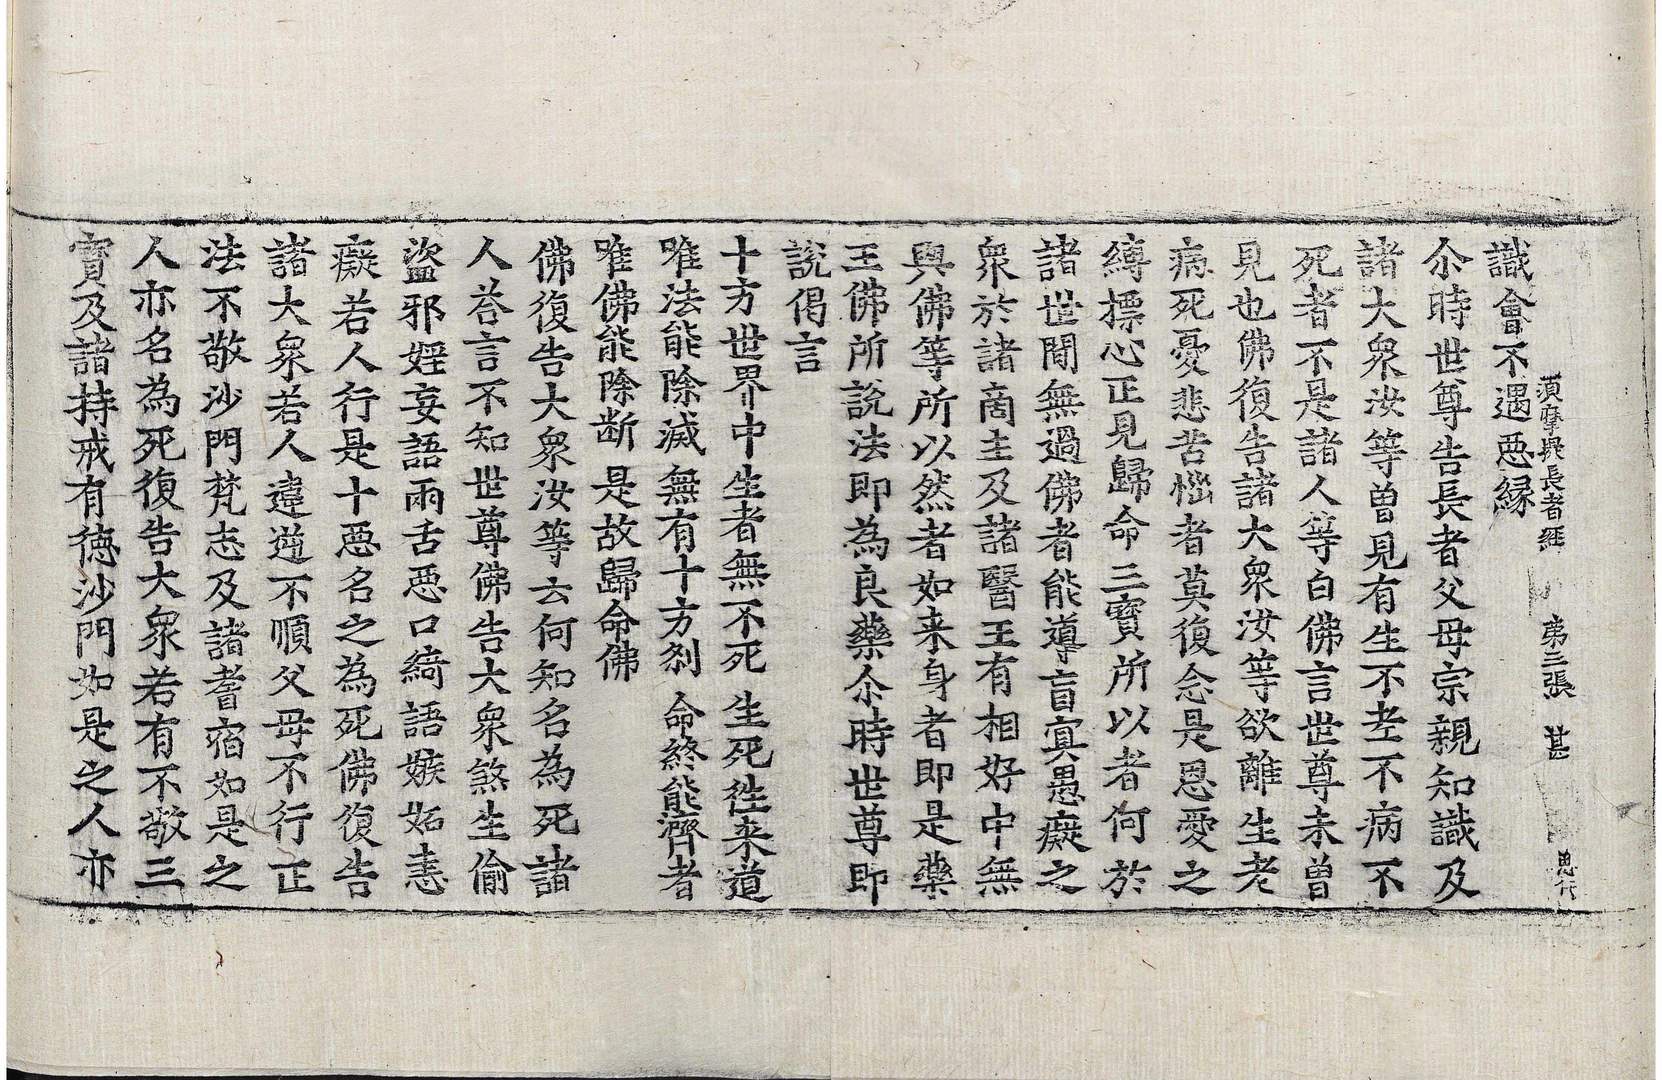 須摩提長者經 第三張 甚
識會不遇惡縁
尒時世尊告長者父母宗親知識及
諸大衆汝等曽見有生不老不病不
死者不是諸人等白佛言世尊未曽
見也佛復告諸大衆汝等欲離生老
病死憂悲苦惱者莫復念是恩愛之
縛摽心正見歸命三寶所以者何於
諸世間無過佛者能導盲冥愚癡之
衆於諸商主及諸醫王有相好中無
與佛等所以然者如来身者即是藥
王佛所說法即為良藥尒時世尊即
說偈言
十方世界中生者無不死 生死徃来道
唯法能除滅 無有十方刹 命終能濟者
唯佛能除断 是故歸命佛
佛復告大衆汝等云何知名為死諸
人荅言不知世尊佛告大衆煞生偷
盜邪婬妄語兩舌惡口綺語嫉妬恚
癡若人行是十惡名之為死佛復告
諸大衆若人違逆不順父母不行正
法不敬沙門梵志及諸耆宿如是之
人亦名為死復告大衆若有不敬三
寳及諸持戒有徳沙門如是之人亦